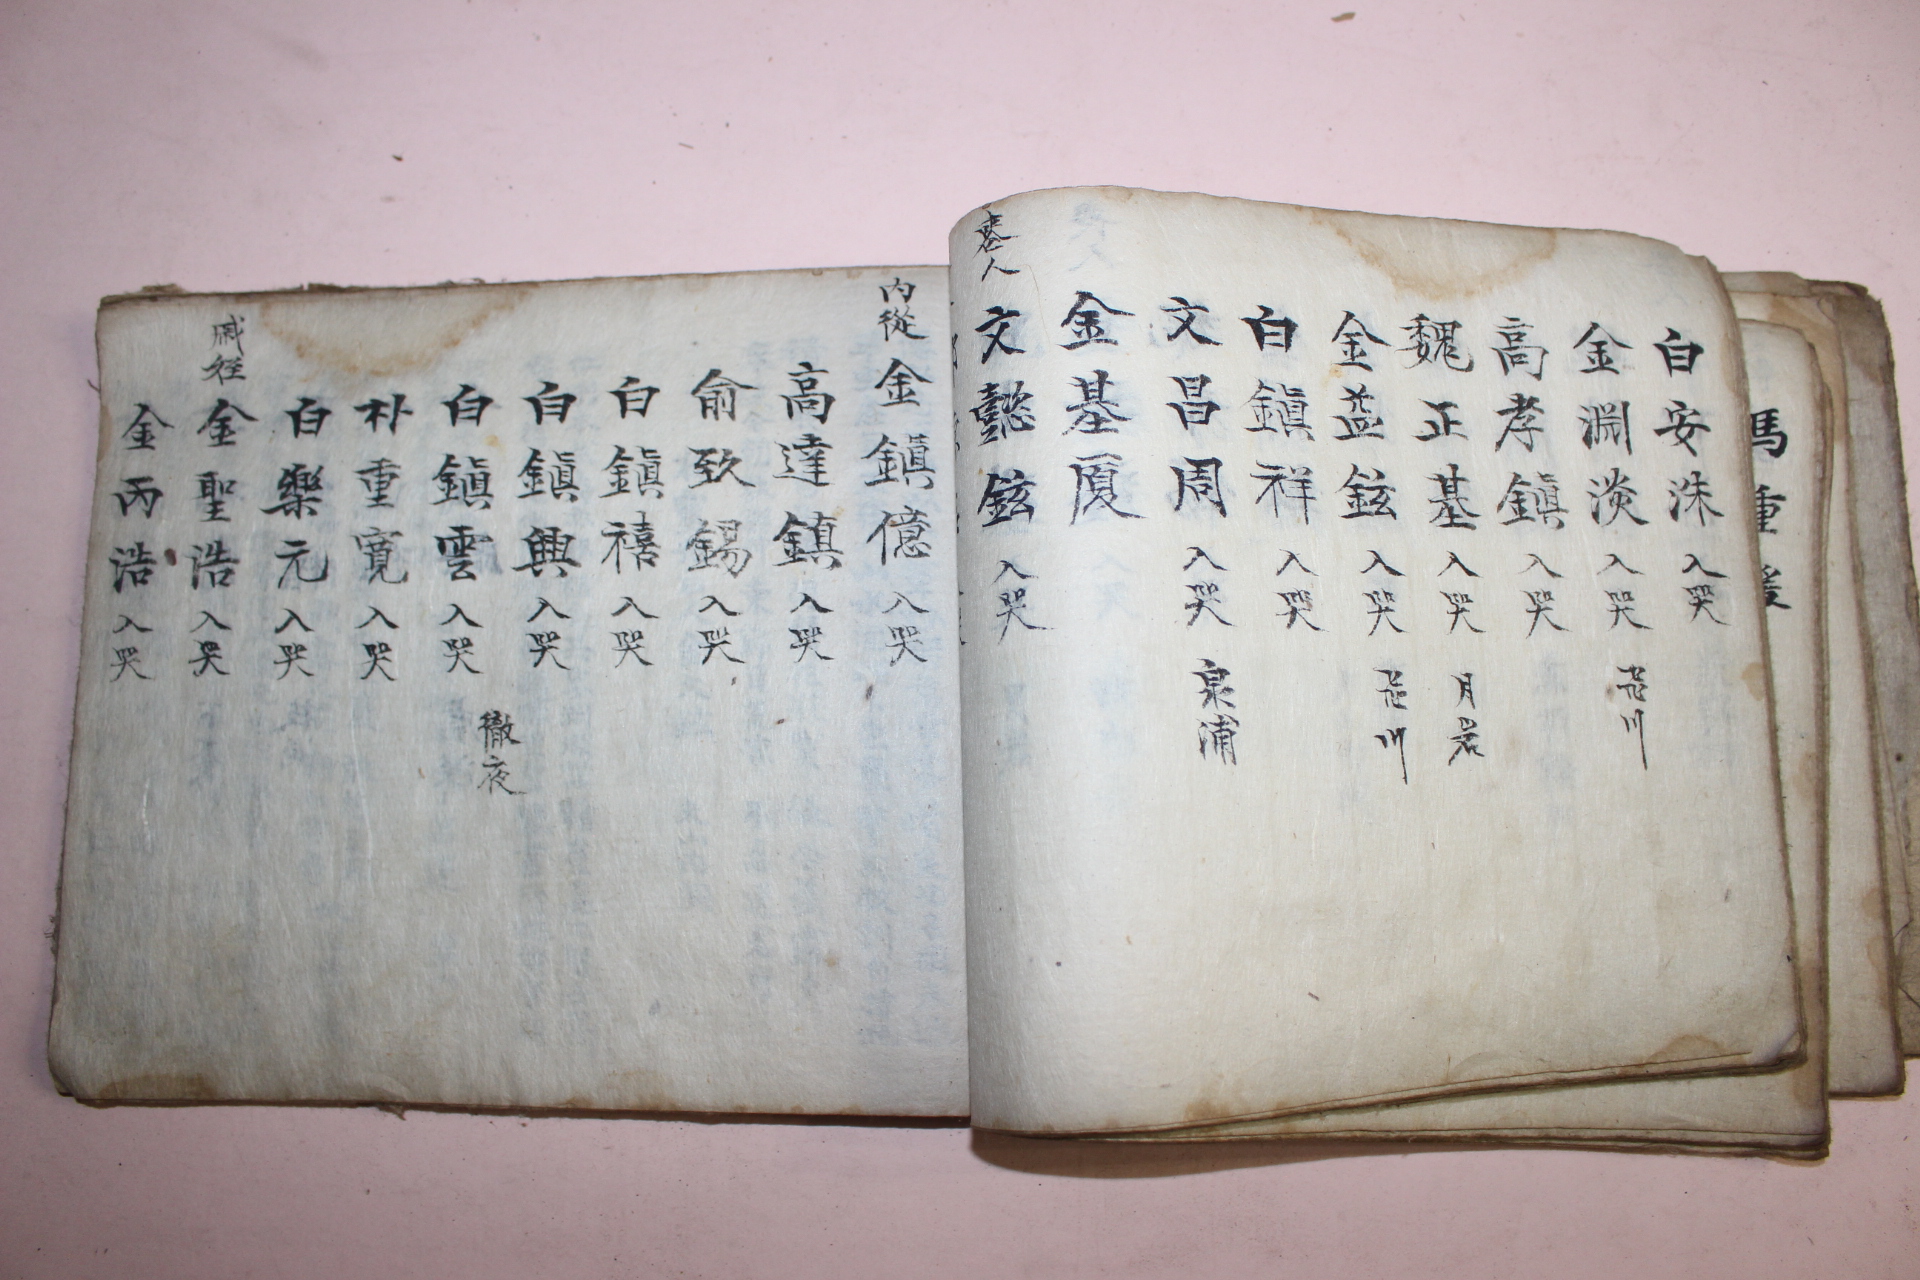 白安洙 入哭
金淵淡 入哭
高孝鎭 入哭
魏正基 入哭 月岩
金益鉉 入哭
白鎭祥 入哭
文昌周 入哭 泉浦
金基厦
文懿鉉 入哭
內從 金鎭億 入哭
高達鎭 入哭
俞致錫 入哭
白鎭禧 入哭
白鎭興 入哭
白鎭雲 入哭 徹夜
朴重寬 入哭
白樂元 入哭
戚姪 金聖浩 入哭
金丙浩 入哭